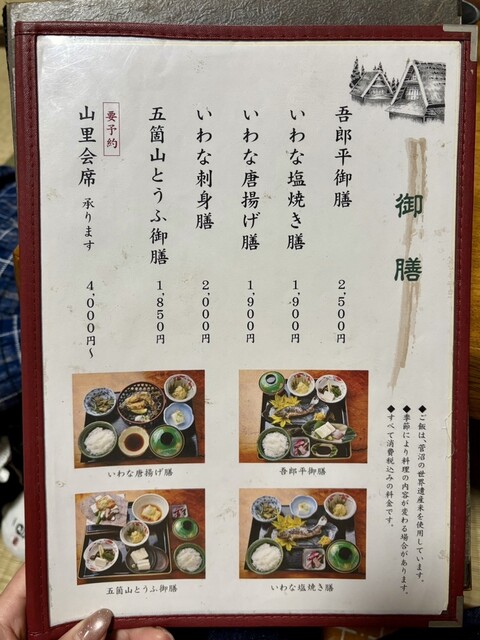 御膳
吾郎平御膳 2,500円
いわな塩焼き膳 1,900円
いわな唐揚げ膳 1,900円
いわな刺身膳 2,000円
五箇山とうふ御膳 1,850円
要予約
山里会席 承ります 4,000円〜
◆ご飯は、菅沼の世界遺産米を使用しています。
◆季節により料理の内容が変わる場合があります。
◆すべて消費税込みの料金です。
いわな唐揚げ膳
吾郎平御膳
五箇山とうふ御膳
いわな塩焼き膳